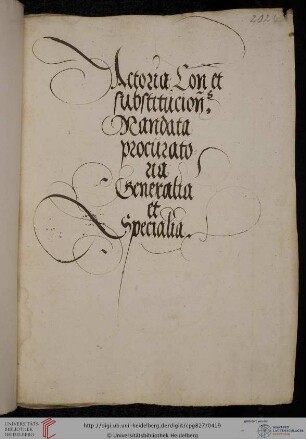 Actoria Con et
substitucion~s
Mandata
procurato
ria
Generalia
et
Specialia.
UNIVERSITÄTS-
BIBLIOTHEK
HEIDELBERG
http://digi.ub.uni-heidelberg.de/diglit/cpg827/0419
© Universitätsbibliothek Heidelberg